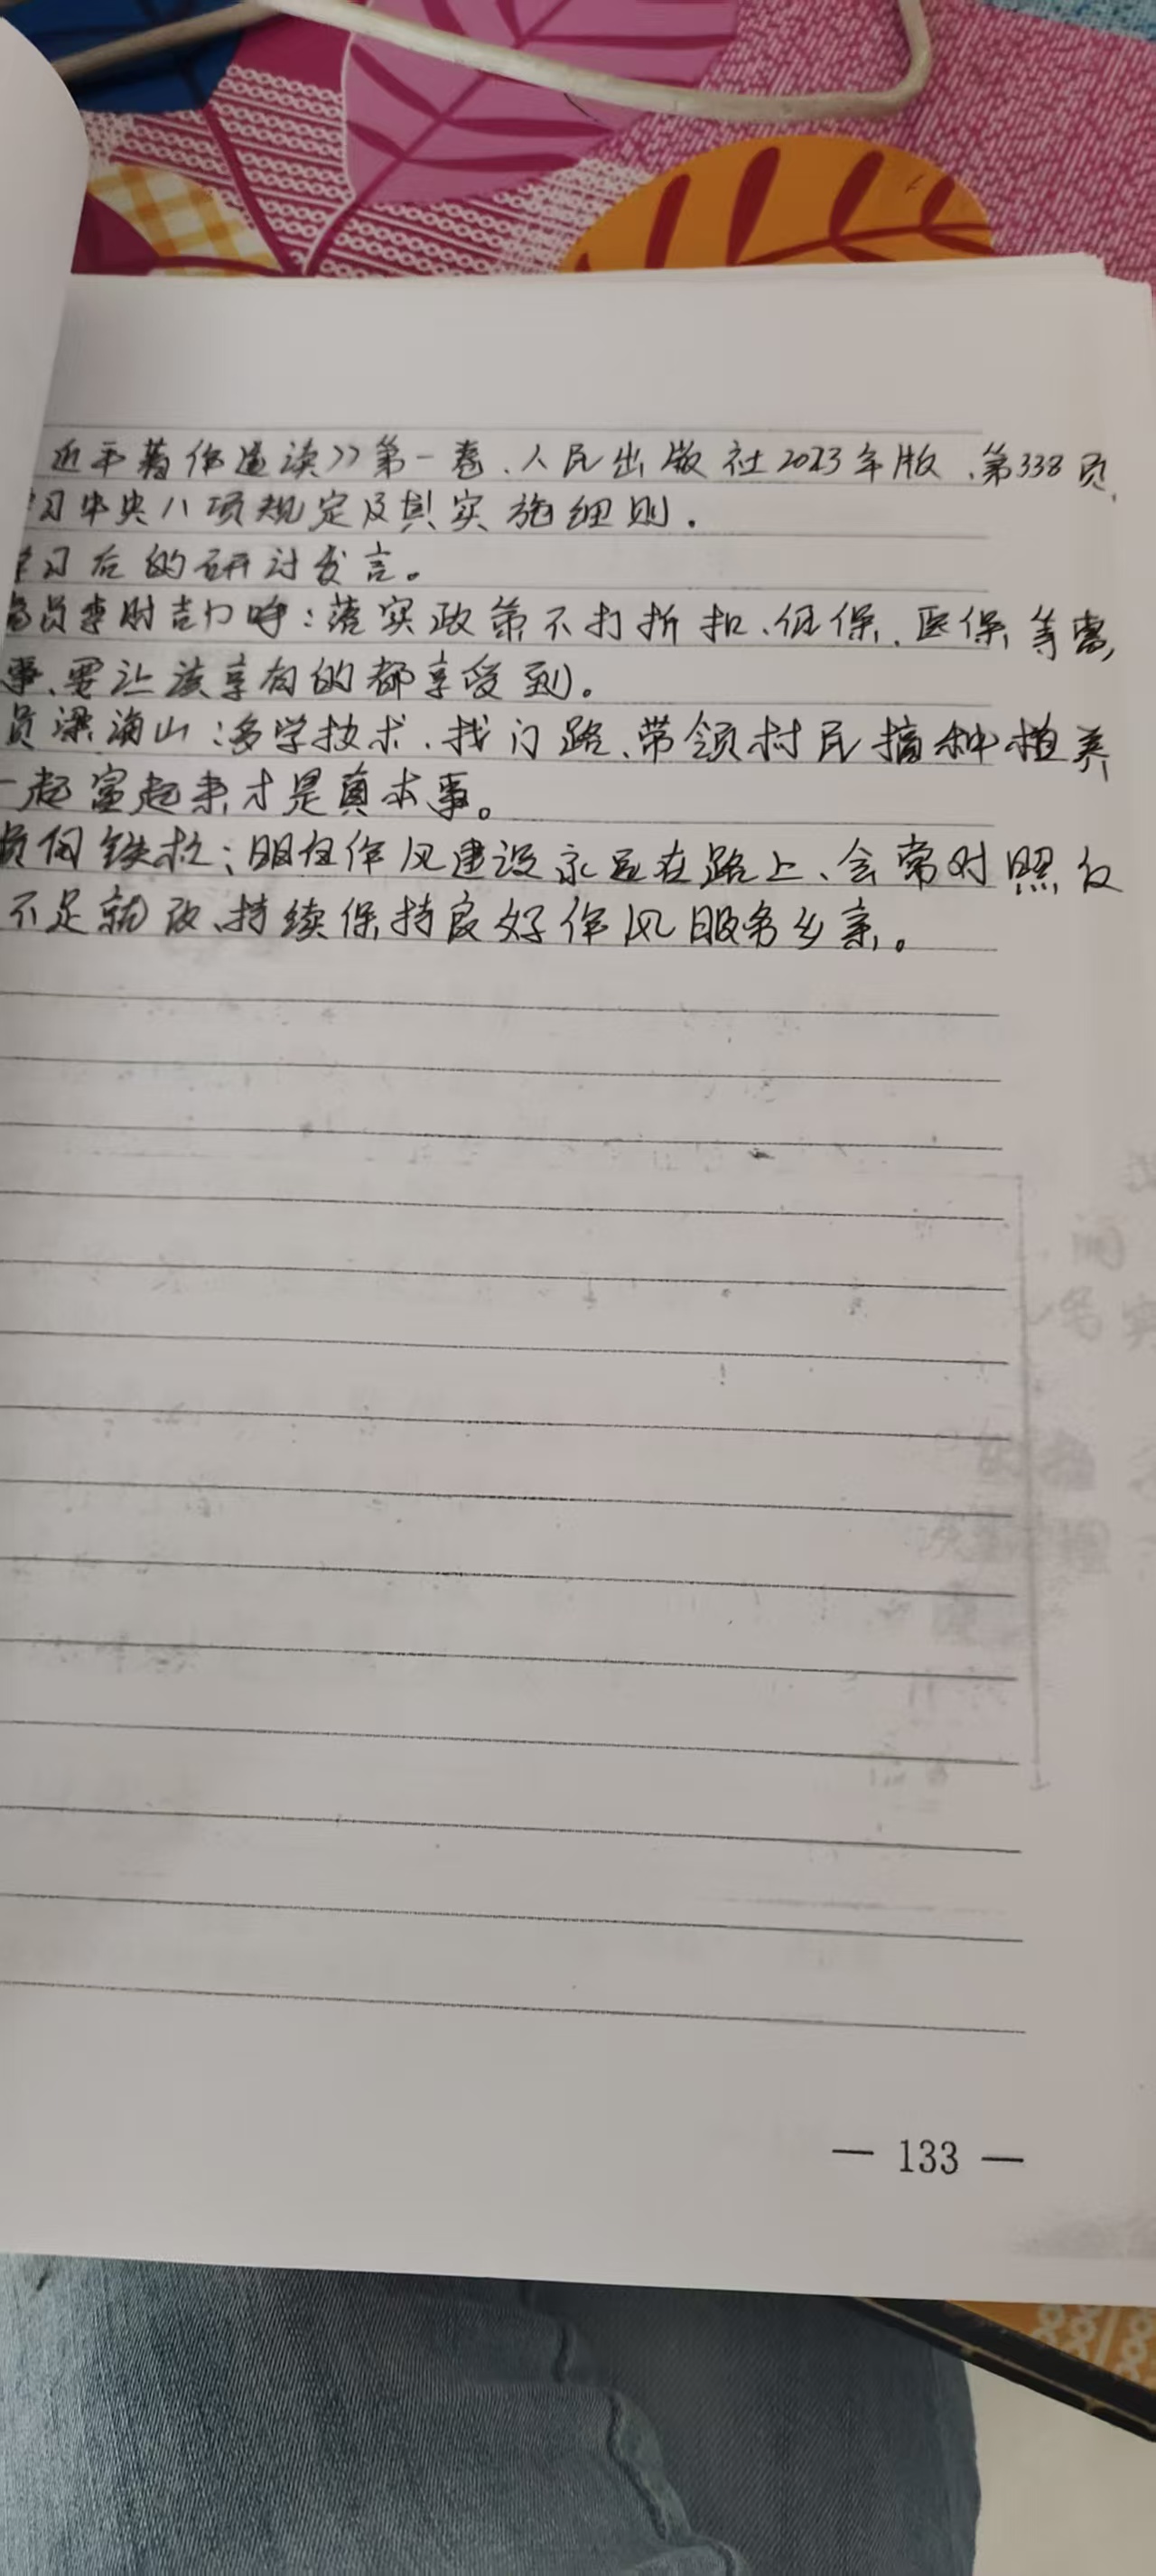 近平著作选读》第一卷、人民出版社2023年版、第338页,
习中央八项规定及其实施细则.
学习后的研讨发言。
党员李财吉力呼:落实政策不打折扣、低保、医保等惠,
事、要让该享有的都享受到。
员梁海山:多学技术、找门路、带领村民搞种植养
一起富起来才是真本事。
员何铁柱:明白作风建设永远在路上、会常对照仪
不足就改、持续保持良好作风服务乡亲。
— 133 —